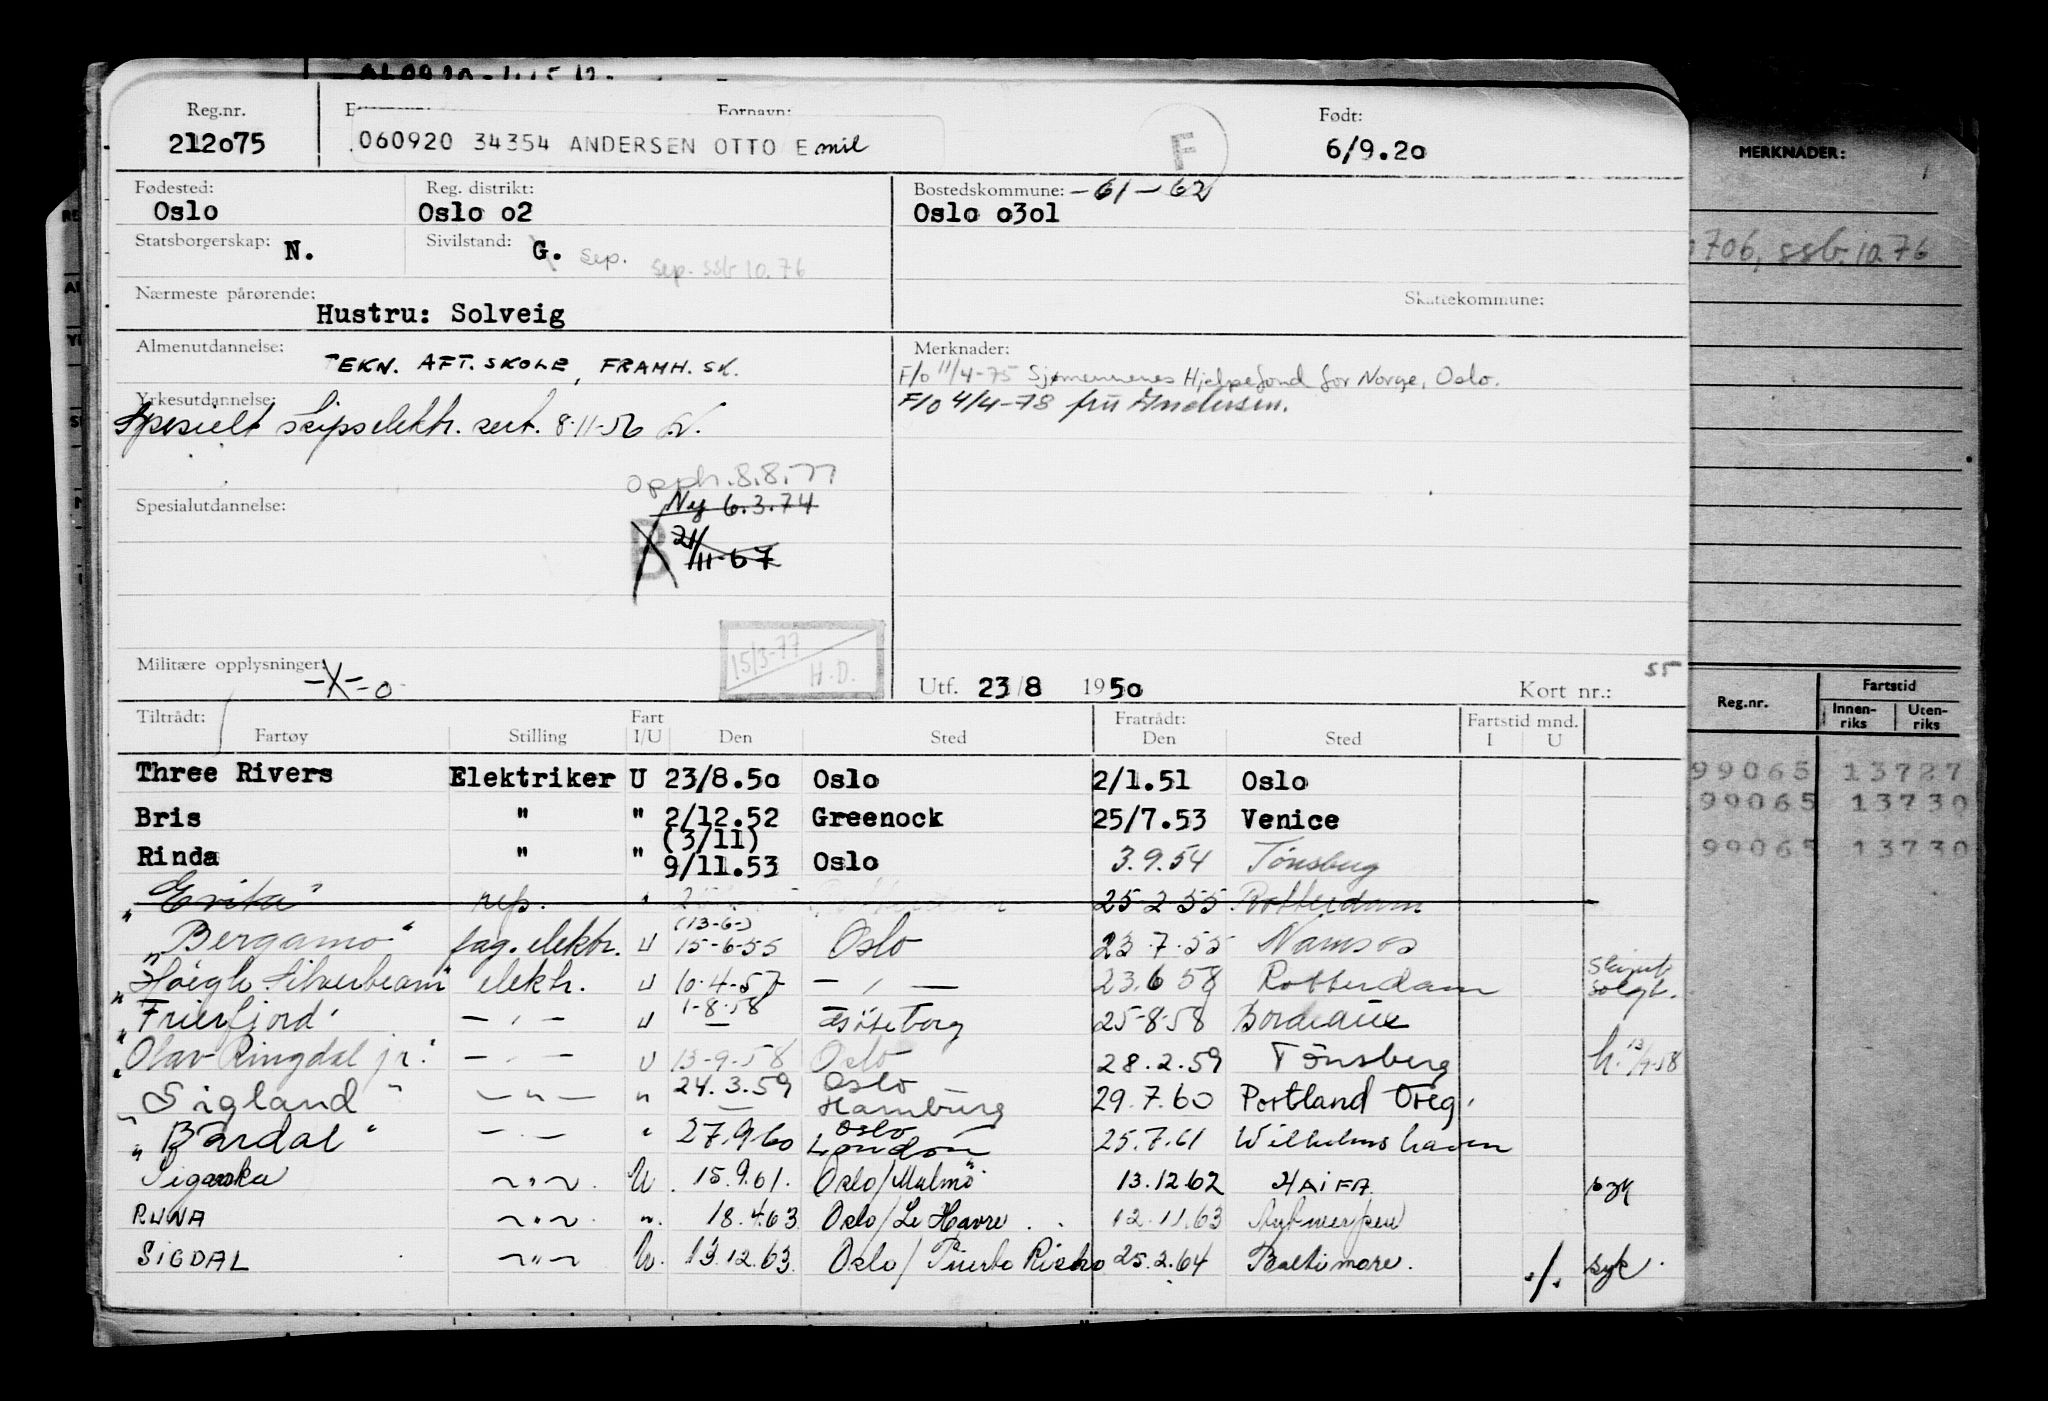 Reg.nr. Fornavn: Født:
212075 060920 34354 ANDERSEN OTTO Emil F 6/9.20
MERKNADER:
Fødested: Reg. distrikt: Bostedskommune: -61-62
Oslo Oslo 02 Oslo 0301
Statsborgerskap: N. Sivilstand: G. Sep. Sep. ssb 10.76
706, ssb. 10.76
Nærmeste pårørende: Skattekommune:
Hustru: Solveig
Almenutdannelse: TEKN. AFT. SKOLE, FRAMH. SK.
Merknader:
F/o 11/4-75 Sjømennenes Hjelpefond for Norge, Oslo.
F/o 4/4-78 fru Andersen.
Yrkesutdannelse:
Spesielt skipselektr. sert. 8-11-56
Opph. 8.8.77
Spesialutdannelse: Ny 6.3.74
B 21/11-67
15/3-77 H.D.
Militære opplysninger: -X-0
Utf. 23/8 1950 Kort nr.: 55
Reg.nr. Fartstid
Innenriks Utenriks
Tiltrådt: Fart Fratrådt: Fartstid mnd.
Fartøy Stilling I/U Den Sted Den Sted I U
Three Rivers Elektriker U 23/8.50 Oslo 2/1.51 Oslo
99065 13727
Bris " " 2/12.52 Greenock 25/7.53 Venice
99065 13730
(3/11)
Rinda " " 9/11.53 Oslo 3.9.54 Tønsberg
99065 13730
"Evita" rep. " 25-2-55 Rotterdam
(13-6-)
"Bergamo" fag. elektr. U 15-6-55 Oslo 23.7.55 Namsos
"Høegh Silverbeam" elektr. U 10-4-57 — " — 23.6 58 Rotterdam Skipet solgt.
"Frierfjord" — " — U 1-8-58 Göteborg 25-8-58 Bordeaux
"Olav Ringdal jr." — " — U 13-9-58 Oslo 28.2.59 Tønsberg
"Sigland" — " — " 24.3.59 Oslo Hamburg 29.7.60 Portland Oreg.
"Bärdal" — " — " 27.9.60 Oslo London 25.7.61 Wilhelmshaven
Siganka — " — U. 15.9.61. Oslo/Malmö 13.12.62 HAIFA syk
RUNA — " — " 18.4.63 Oslo/Le Havre 12.11.63 Antwerpen
SIGDAL — " — U. 13.12.63 Oslo/Puerto Rico 25.2.64 Baltimore. ./. syk.